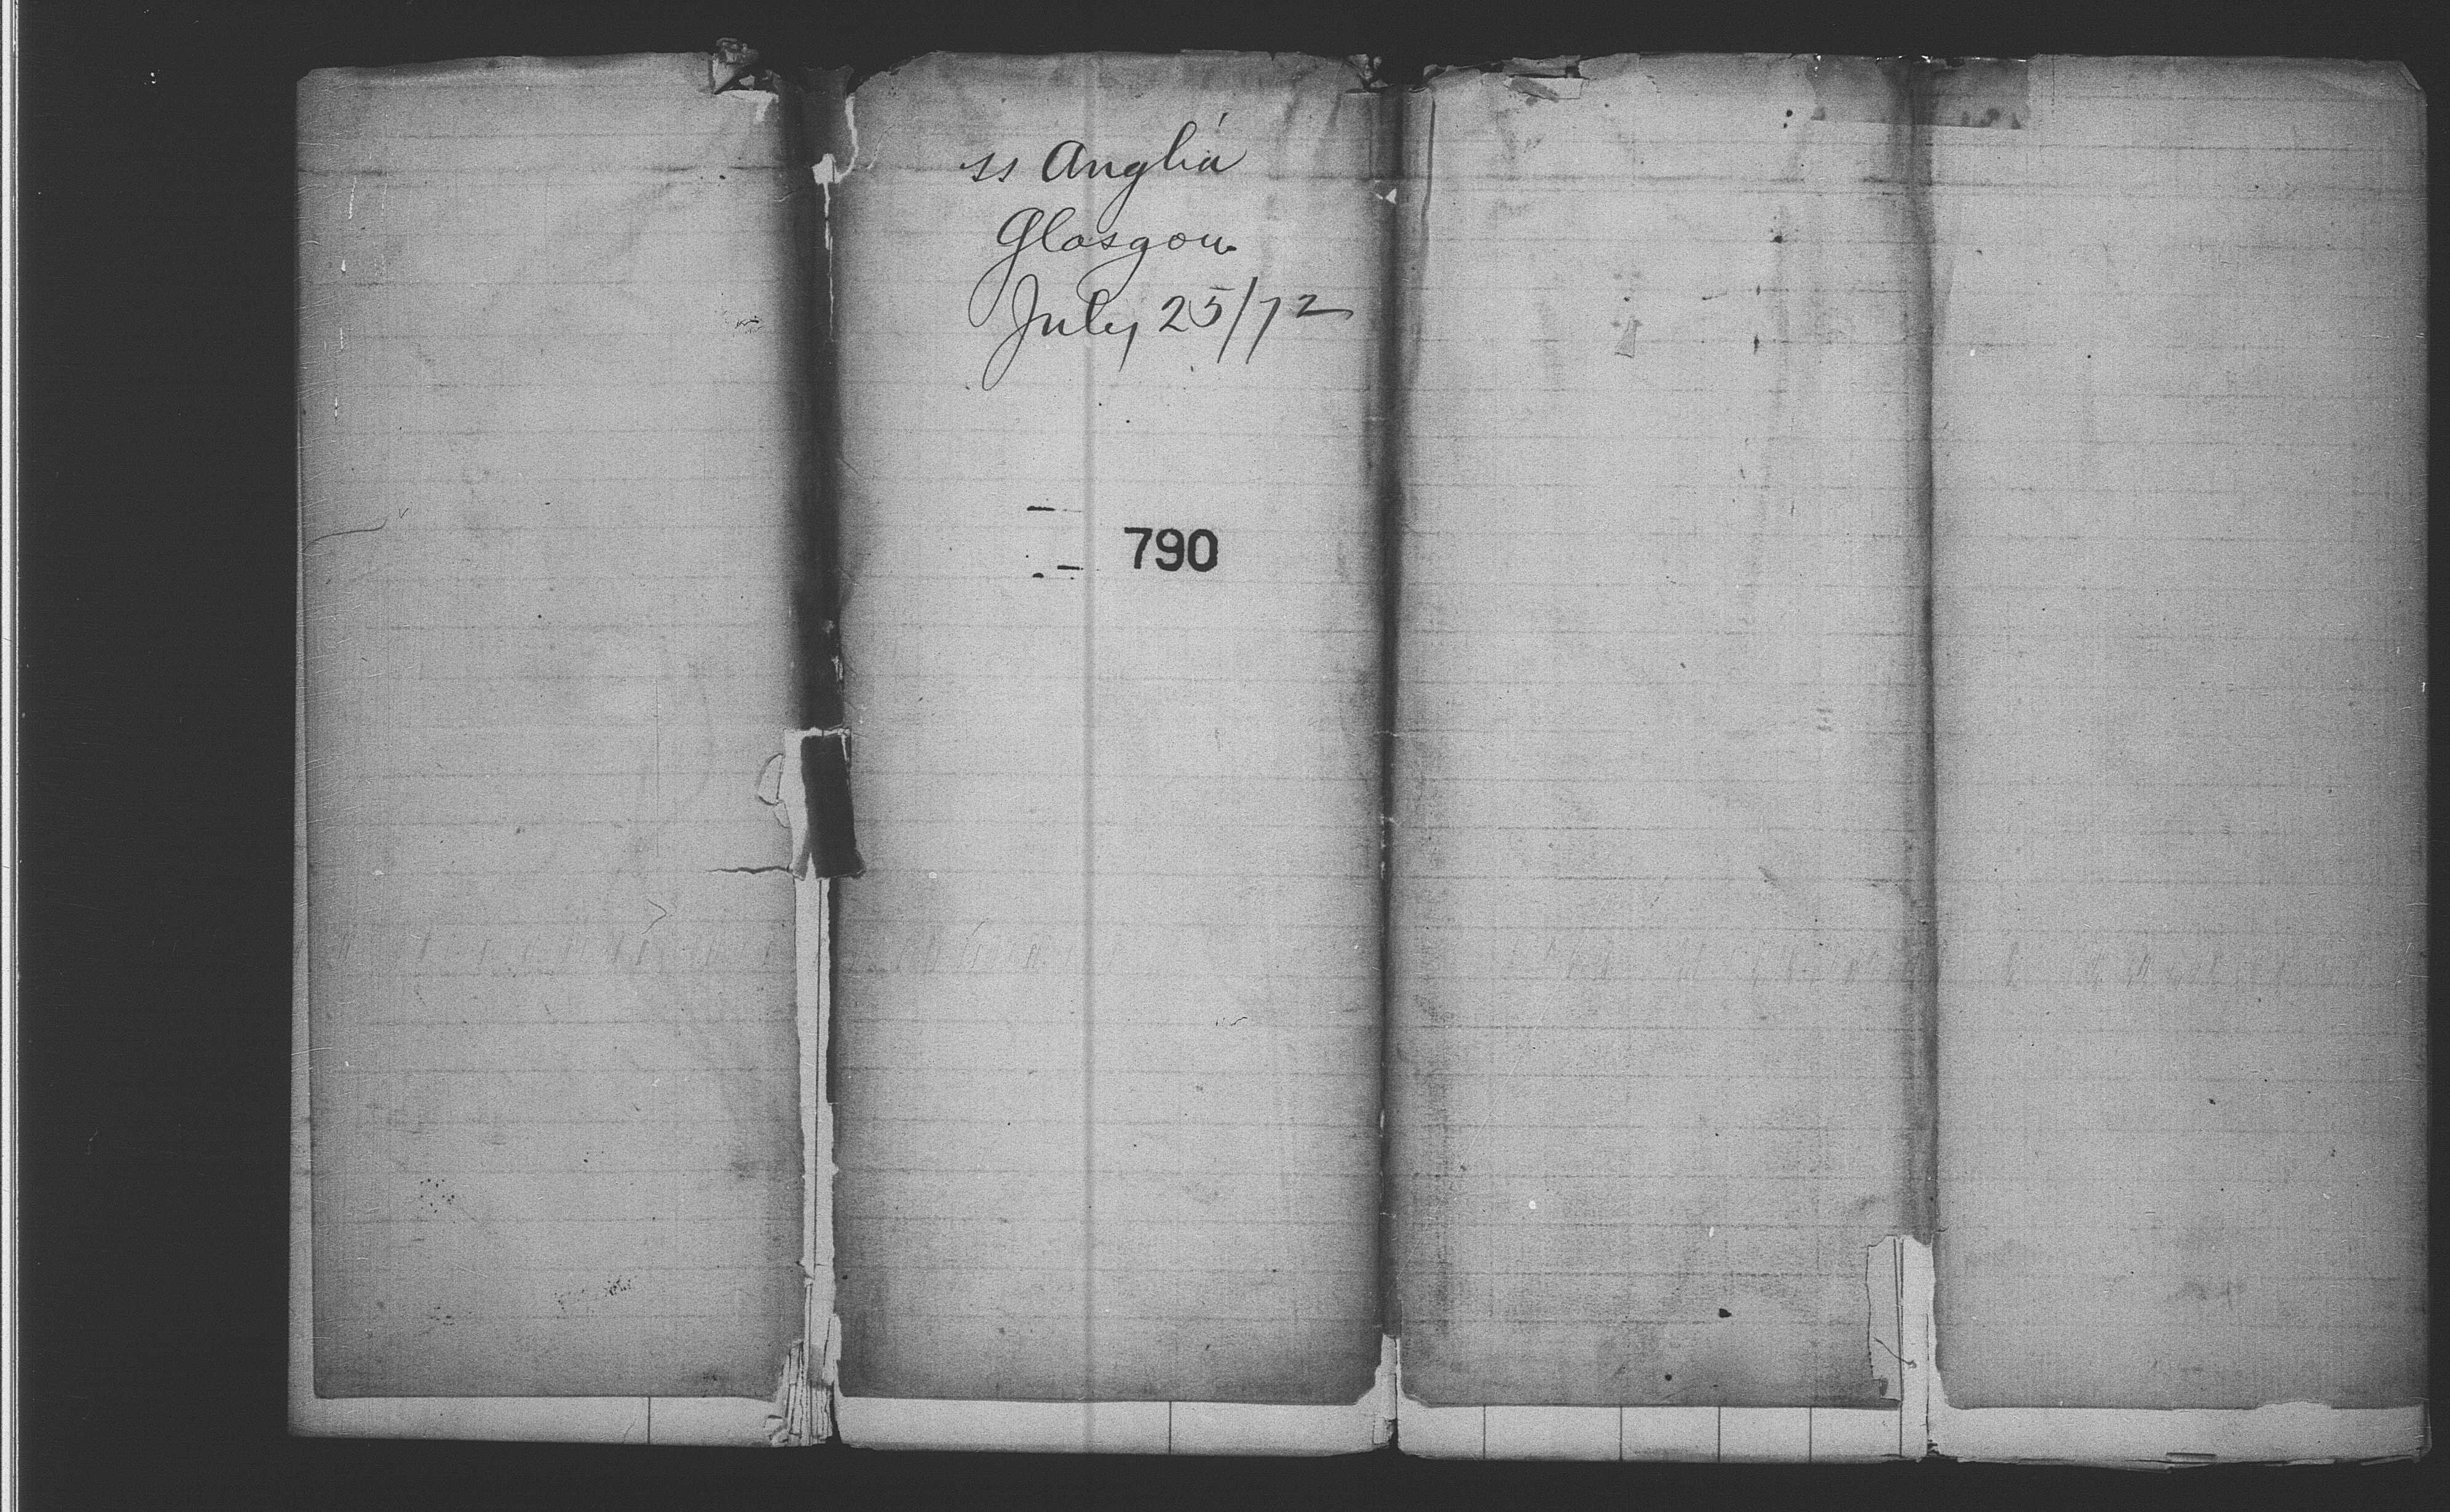 ss Anglia
Glasgow
July 25/72
790